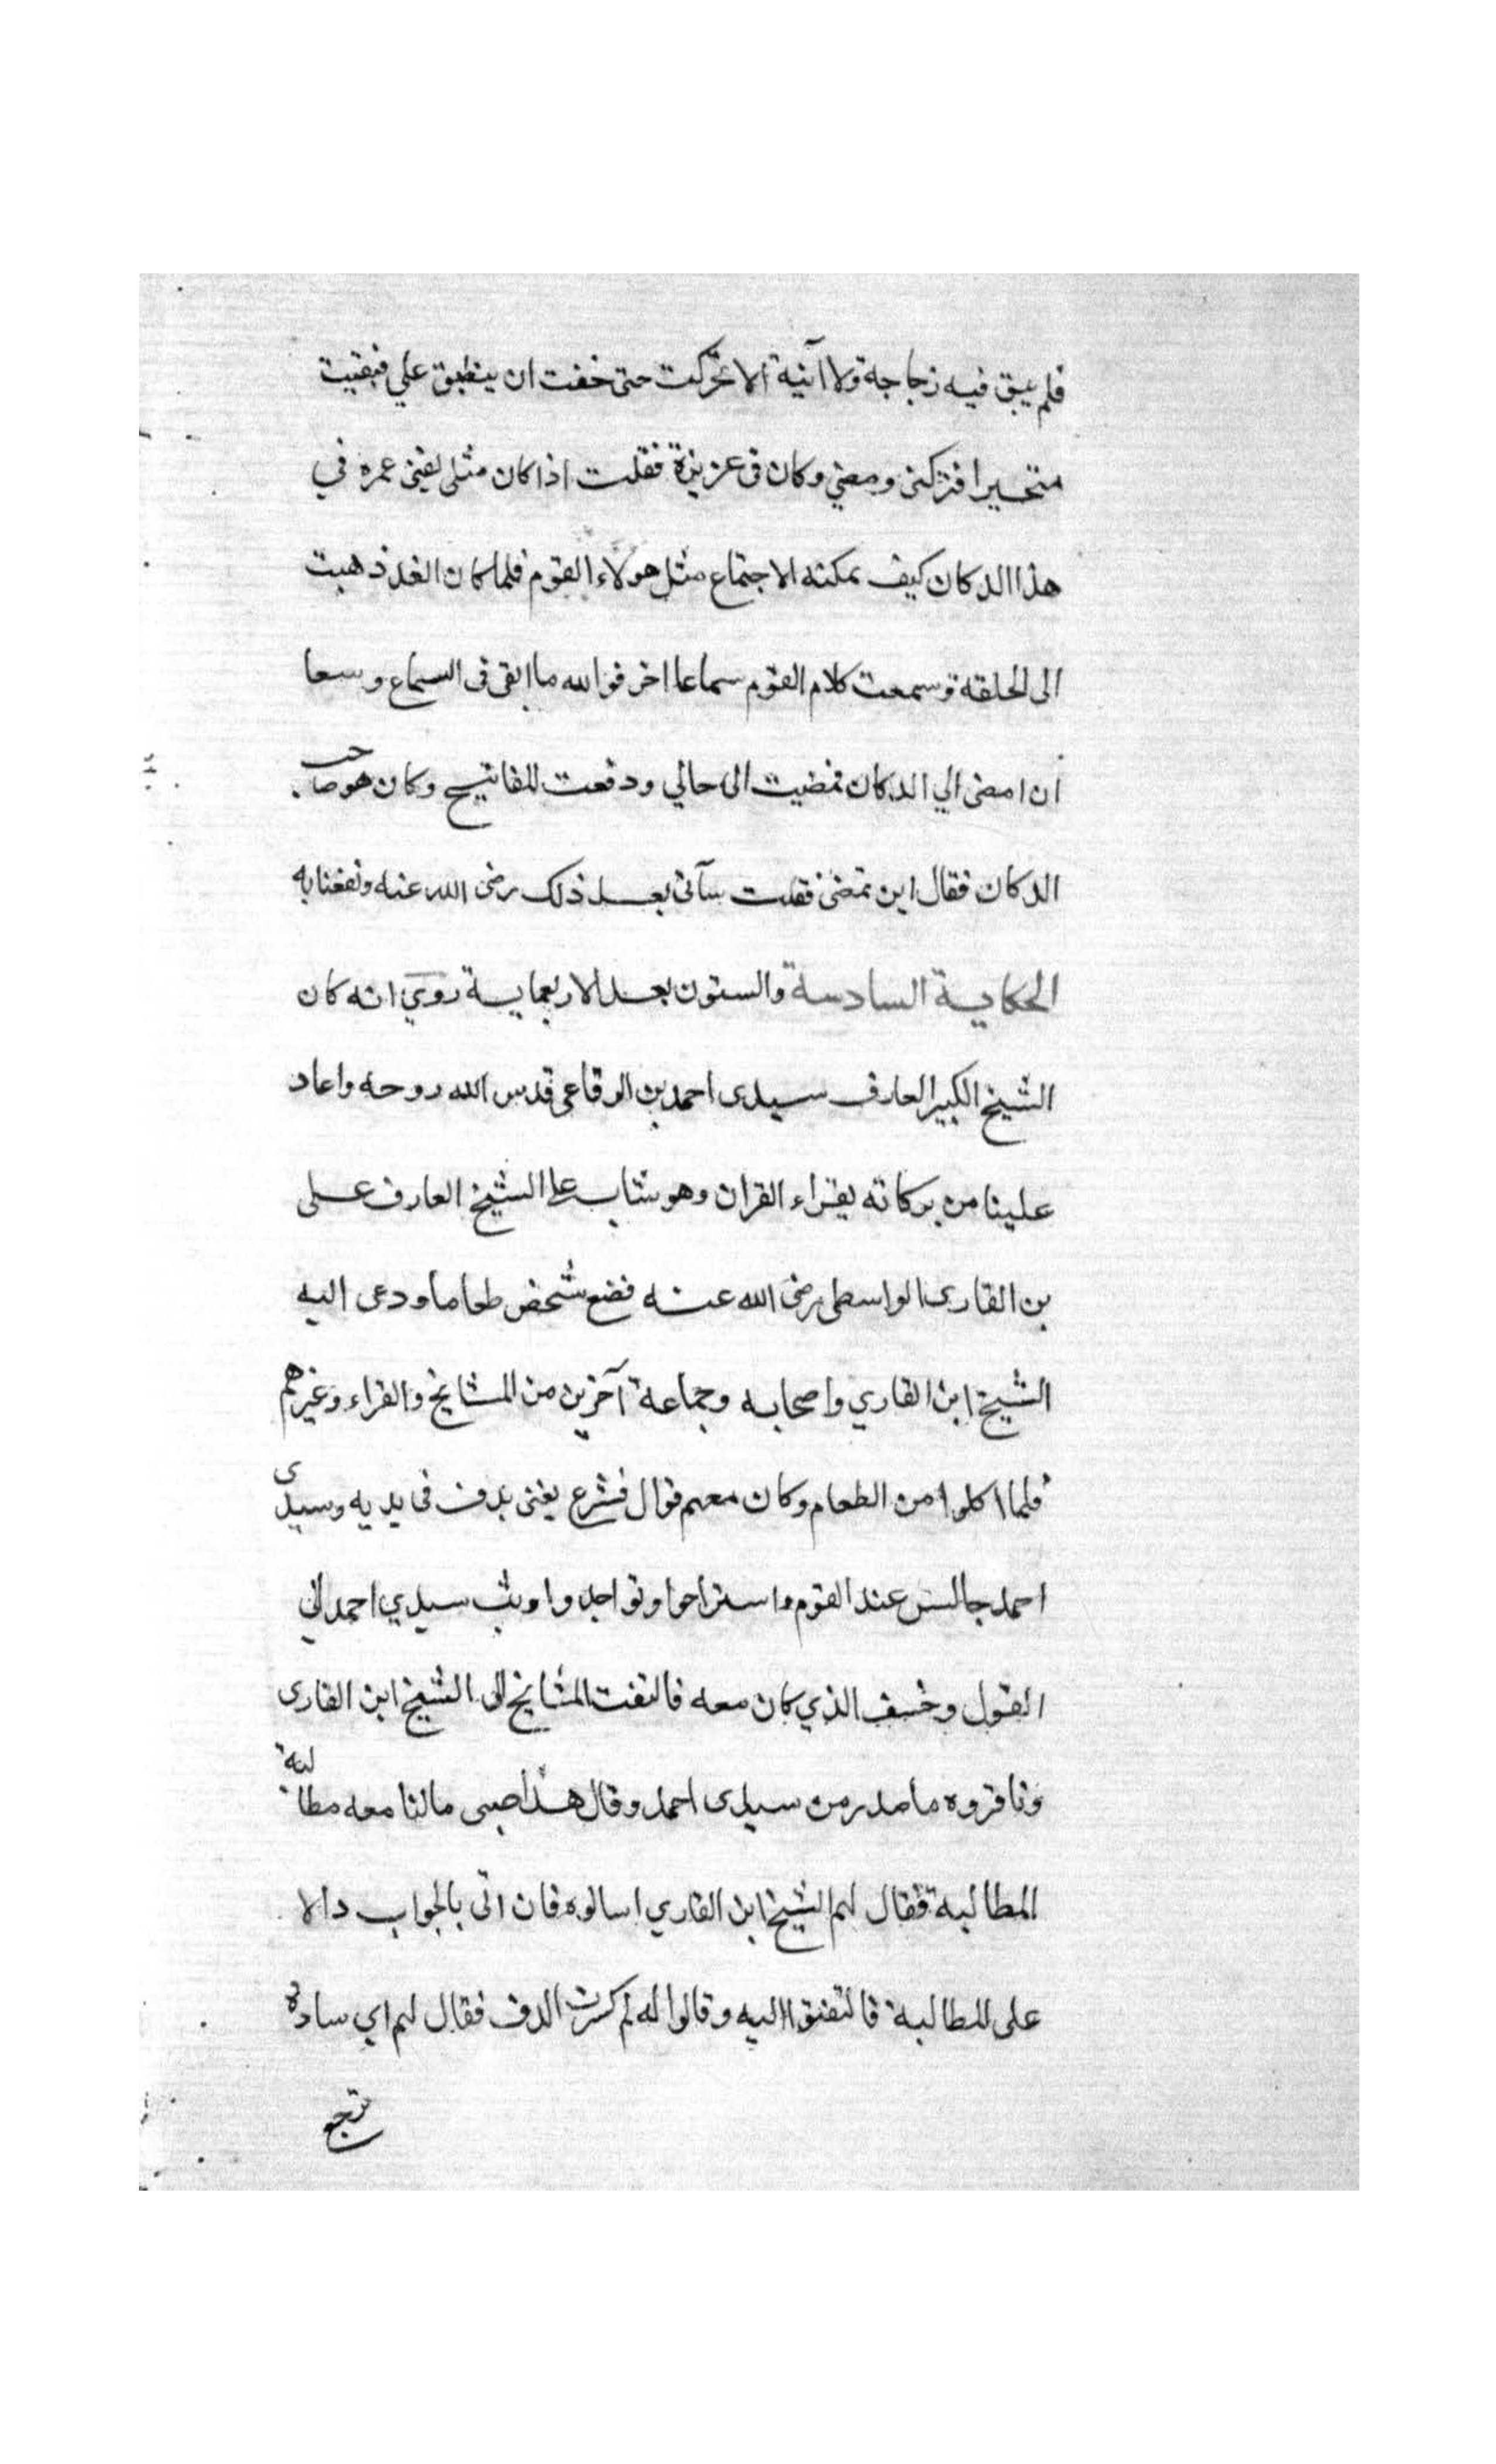 فلم يبق فيه زجاجة ولا آنية الا تحركت حتى خفت ان ينطبق علي فبقيت
متحيرا فتركنى ومضي وكان فى عزيزة فقلت اذا كان مثلى يفنى عمره في
هذا الدكان كيف يمكنه الاجتماع مثل هولاء القوم فلما كان الغد ذهبت
الى الحلقة وسمعت كلام القوم سماعا اخر فوالله ما ابقى فى السماع وسعا
ان امضى الي الدكان فمضيت الى حالي ودفعت المفاتيح وكان هو صاحب
الدكان فقال اين تمضى فقلت سآتى بعد ذلك رضى الله عنه ونفعنا به
الحكاية السادسة والستون بعد الاربعماية روي انه كان
الشيخ الكبير العارف سيدى احمد بن الرفاعى قدس الله روحه واعاد
علينا من بركاته يقراء القران وهو شاب على الشيخ العارف على
بن القارى الواسطى رضى الله عنه فضع شخص طعاما ودعى اليه
الشيخ ابن القاري واصحابه وجماعة آخرين من المشايخ والقراء وغيرهم
فلما اكلوا من الطعام وكان معهم قوال فشرع يغنى بدف فى يديه وسيدى
احمد جالس عند القوم واستراحوا وتواجدوا وثب سيدي احمد الى
القول وخسف الذي كان معه فالتفت المشايخ الى الشيخ ابن القارى
ونافروه ما صدر من سيدى احمد وقال هذا صبى مالنا معه مطالبة
المطالبة فقال لهم الشيخ ابن القاري اسالوه فان اتى بالجواب والا
على المطالبة فالتفتوا اليه وقالوا له لم كسرت الدف فقال لهم اي سادة